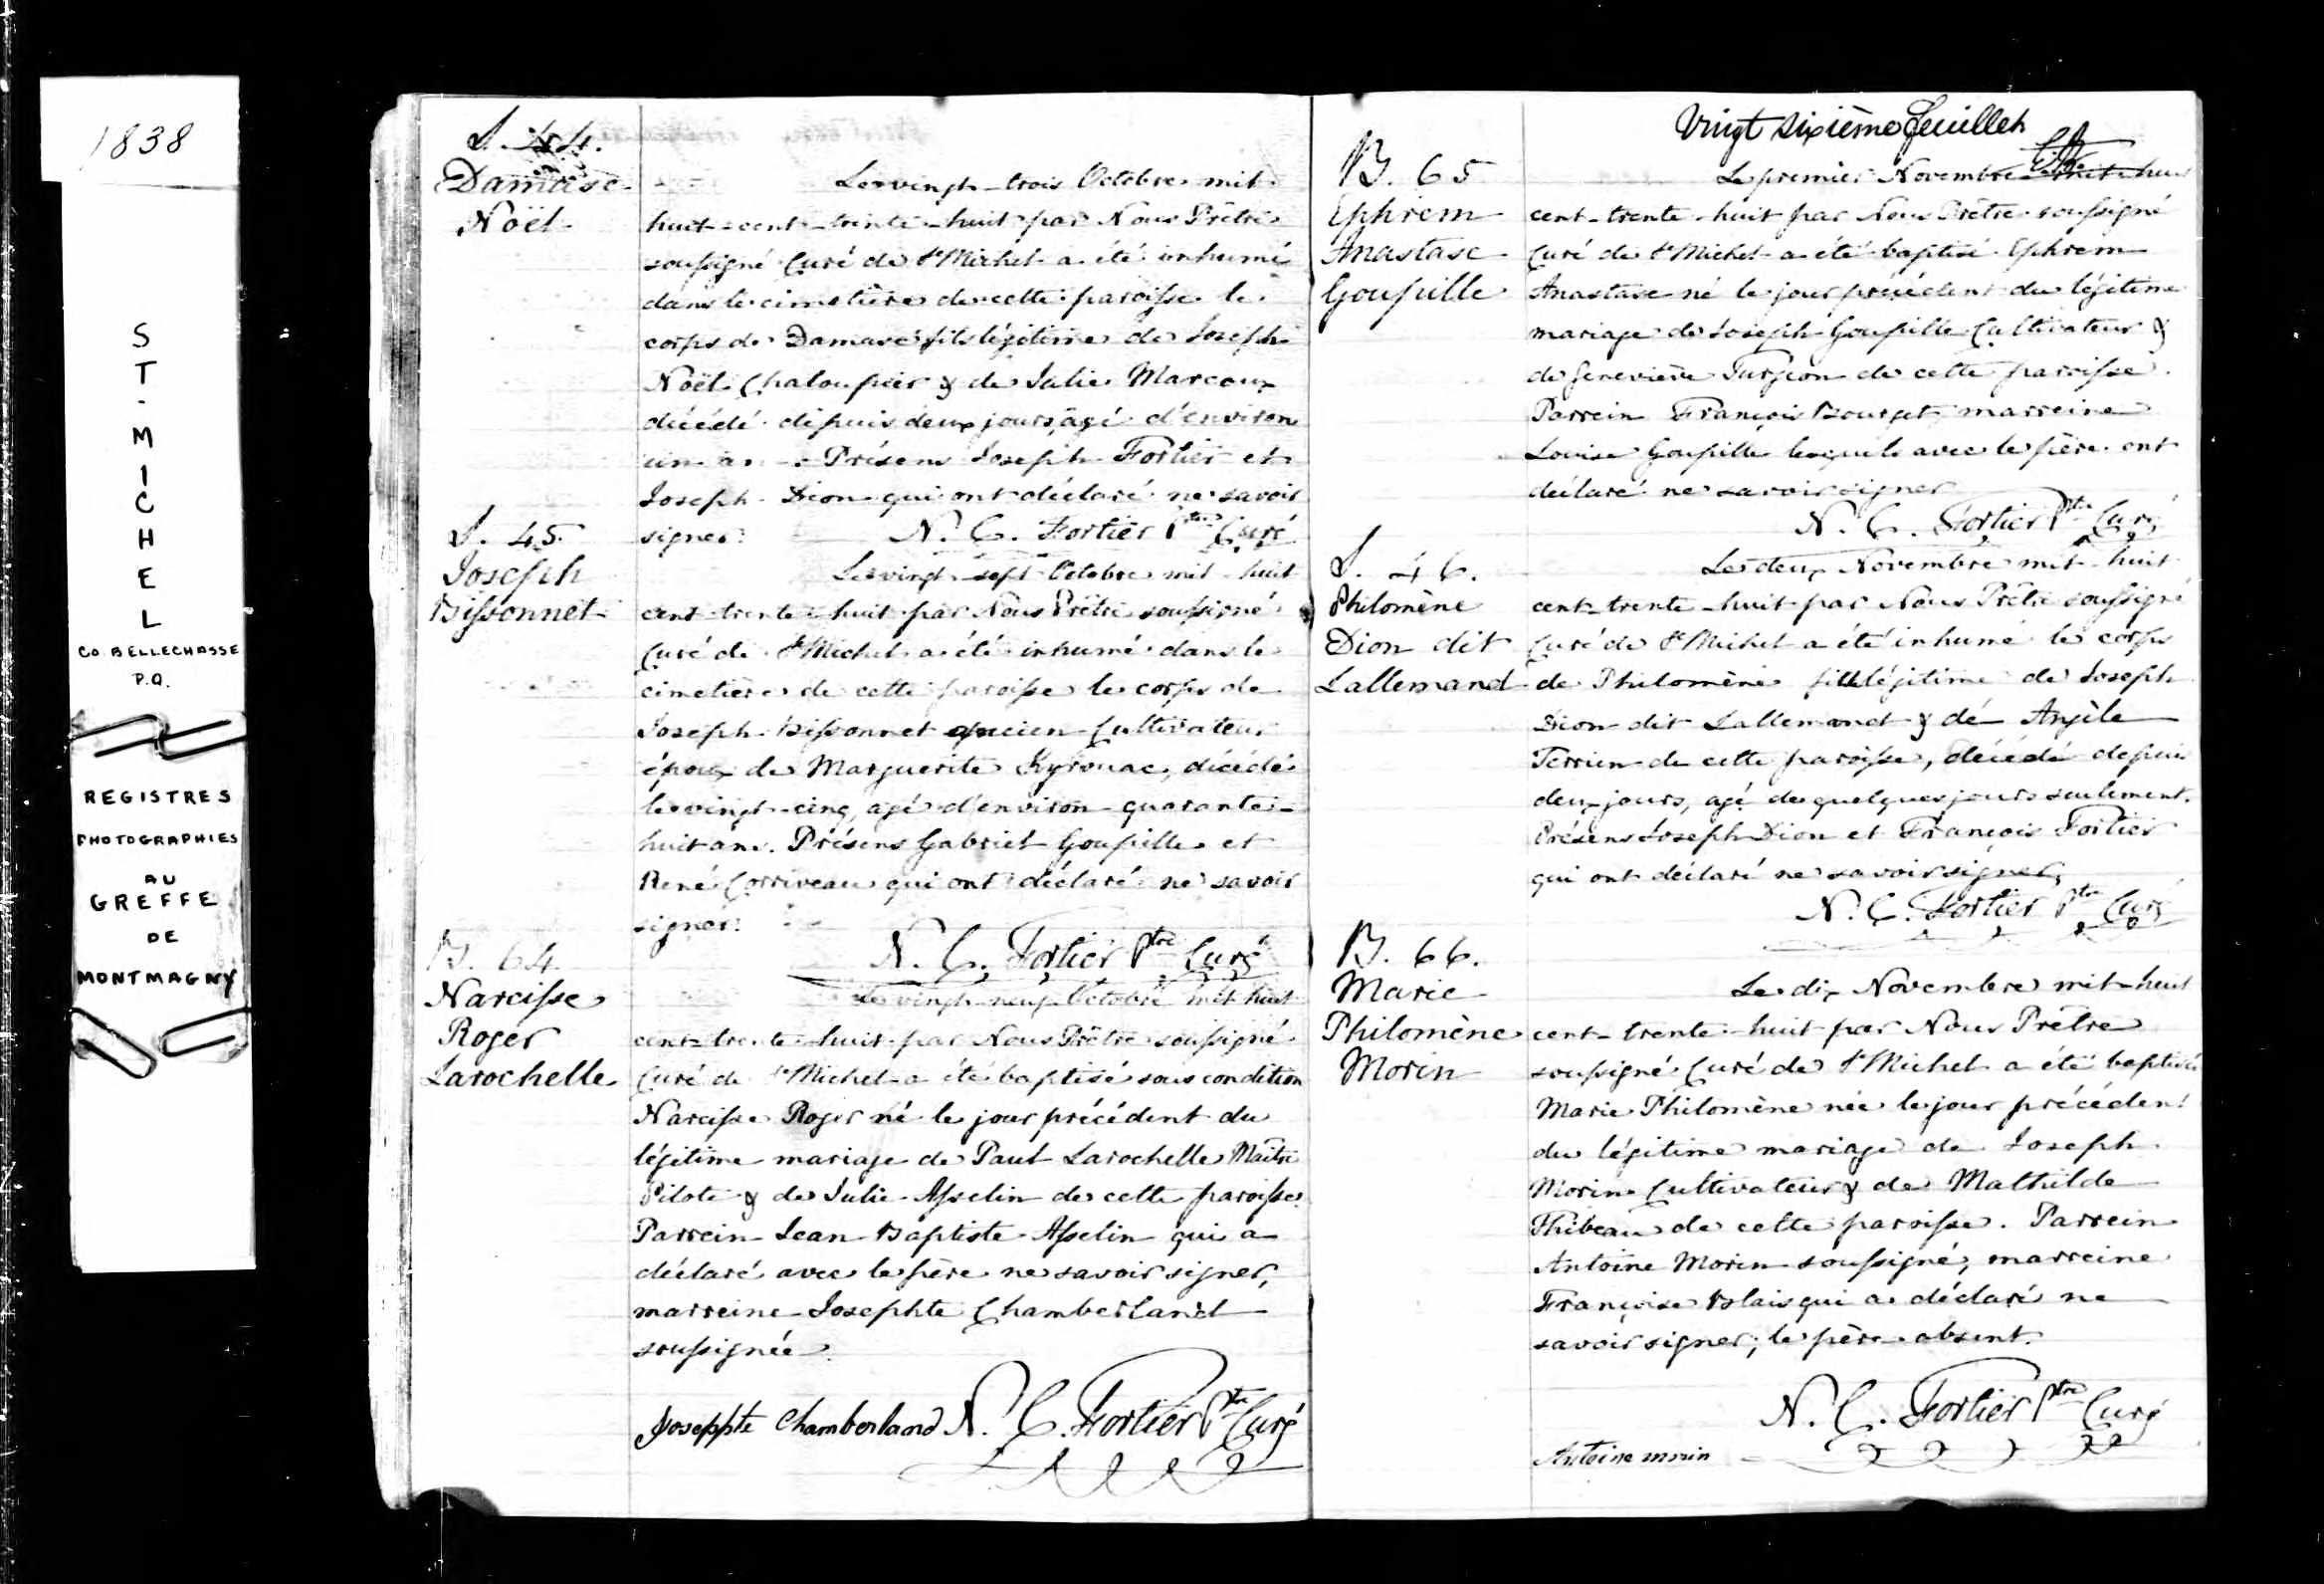 1838
ST. MICHEL
CO. BELLECHASSE
P.Q.
REGISTRES
PHOTOGRAPHIES
AU
GREFFE
DE
MONTMAGNY
S. 44.
Damase
Noël
Le vingt-trois Octobre mil
huit-cent-trente-huit par Nous Prêtre
soussigné Curé de St Michel a été inhumé
dans le cimetière de cette paroisse le
corps de Damase fils légitime de Joseph
Noël Chaloupier & de Julie Marcoux
décédé depuis deux jours, agé d'environ
un an. Présens Joseph Fortier et
Joseph Dion qui ont déclaré ne savoir
signer. N. C. Fortier Ptre Curé
S. 45.
Joseph
Bissonnet
Le vingt-sept Octobre mil-huit
cent-trente-huit par Nous Prêtre soussigné
Curé de St Michel a été inhumé dans le
cimetière de cette paroisse le corps de
Joseph Bissonnet ancien Cultivateur
époux de Marguerite Kyrouac, décédé
le vingt-cinq, agé d'environ quarante-
huit ans. Présens Gabriel Goupille et
René Corriveau qui ont déclaré ne savoir
signer.
N. C. Fortier Ptre Curé
B. 64
Narcisse
Roger
Larochelle
Le vingt-neuf Octobre mil-huit
cent-trente-huit par Nous Prêtre soussigné
Curé de St Michel a été baptisé sous condition
Narcisse Roger né le jour précédent du
légitime mariage de Paul Larochelle Maître
Pilote & de Julie Asselin de cette paroisse.
Parrein Jean-Baptiste Asselin qui a
déclaré avec le père ne savoir signer,
marreine Josephte Chamberland
soussignée.
Josephte Chamberland N. C. Fortier Ptre Curé
Vingt sixième feuillet
B. 65
Ephrem
Anastase
Goupille
Le premier Novembre mil-huit
cent-trente-huit par Nous Prêtre soussigné
Curé de St Michel a été baptisé Ephrem
Anastase né le jour précédent du légitime
mariage de Joseph Goupille Cultivateur &
de Geneviève Turgeon de cette paroisse.
Parrein François Bourget marreine
Louise Goupille lesquels avec le père ont
déclaré ne savoir signer
N. C. Fortier Ptre Curé
S. 46.
Philomène
Dion dit
Lallemand
Le deux Novembre mil-huit
cent-trente-huit par Nous Prêtre soussigné
Curé de St Michel a été inhumé le corps
de Philomène fille légitime de Joseph
Dion dit Lallemand & de Angèle
Terrien de cette paroisse, décédé depuis
deux jours, agé de quelques jours seulement.
Présens Joseph Dion et François Fortier
qui ont déclaré ne savoir signer,
N. C. Fortier Ptre Curé
B. 66.
Marie
Philomène
Morin
Le dix Novembre mil-huit
cent-trente-huit par Nous Prêtre
soussigné Curé de St Michel a été baptisée
Marie Philomène née le jour précédent
du légitime mariage de Joseph
Morin Cultivateur & de Mathilde
Thibeau de cette paroisse. Parrein
Antoine Morin soussigné, marreine
Françoise Blais qui a déclaré ne
savoir signer; le père absent.
N. C. Fortier Ptre Curé
Antoine morin